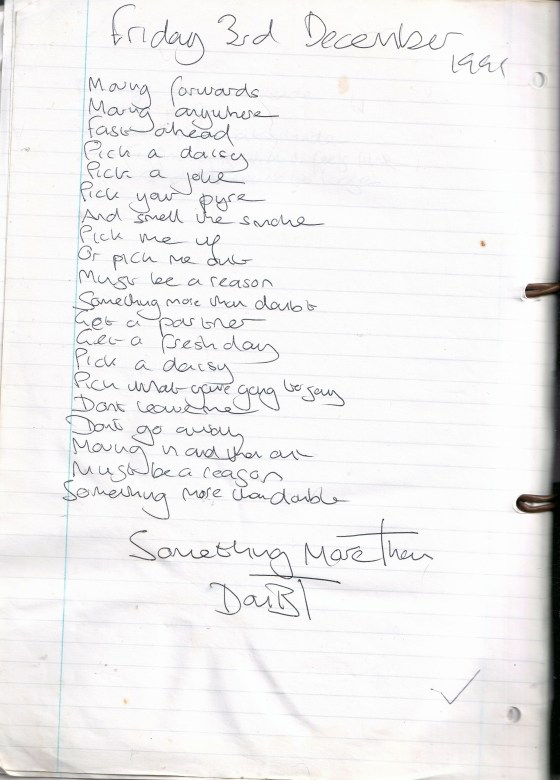 Friday 3rd December
Moving forwards
Moving anywhere
Fast ahead
Pick a daisy
Pick a joke
Pick your pyre
And smell the smoke
Pick me up
Or pick me out
Must be a reason
Something more than doubt
Get a partner
Get a fresh day
Pick a daisy
Pick what youre going to say
Dont leave me
Dont go away
Moving in and then out
Must be a reason
Something more than doubt
Something More Than
DouBT